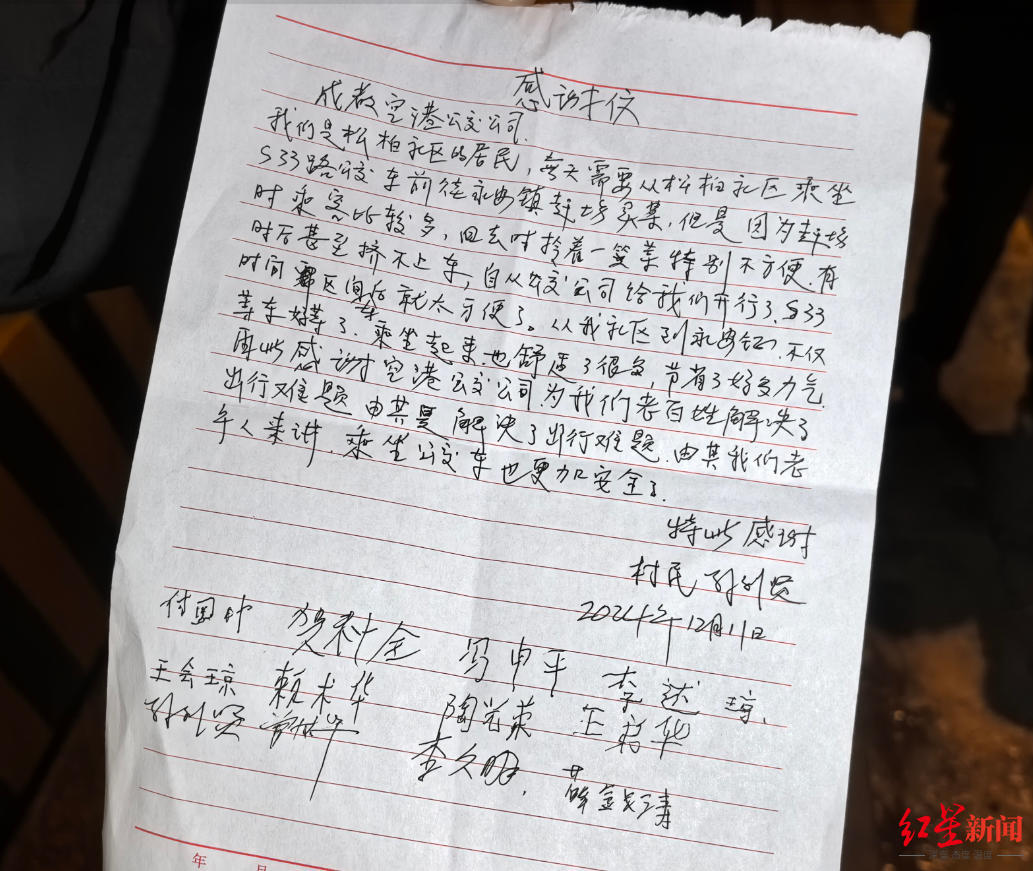 感谢信
成都空港公交公司.
我们是松柏社区的居民，每天需要从松柏社区乘坐
S33路公交车前往永安镇赶场买菜，但是因为赶场
时乘客比较多，回去时拎着一篮菜特别不方便.有
时后甚至挤不上车，自从公交公司给我们开行了S33
时间区间车后就太方便了。从我社区到永安镇，不仅
等车好等了.乘坐起来也舒适了很多，节省了好多力气.
再此感谢空港公交公司为我们老百姓解决了
出行难题由其是解决了出行难题.由其我们老
年人来讲.乘坐公交车也更加安全了.
特此感谢
村民
2024年12月11日
付国 贺科全 冯申平 李述琼、
王会琼 赖术华 陶 荣 王 华
李久明.
年 月
红星新闻
深度 态度 温度